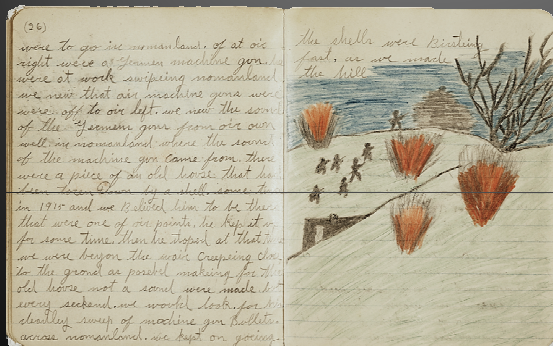 (26)
were to go in nomanland. of at oir
right were a German machine gun
were at work swipeing nomanland
we new that air machine guns were
were off to oir left. we new the sound
of the German guns from oir own
well in nomanland where the sound
of the machine gun came from. there
were a piece of an old horse that ha
been torn down by a shell some ti
in 1915 and we Beleved him to be the
that were one of oir points. he kep at
for some time. then he stoped at that
we were beyon the wair creepeing clos
to the grond as posebl makeing for th
old horse not a sond were made. but
every seckend. we would look for
deartley sweep of machine gun Bullets
across nomanland. we kept on goeing
the shells were Birsting
fast. as we made
the hill